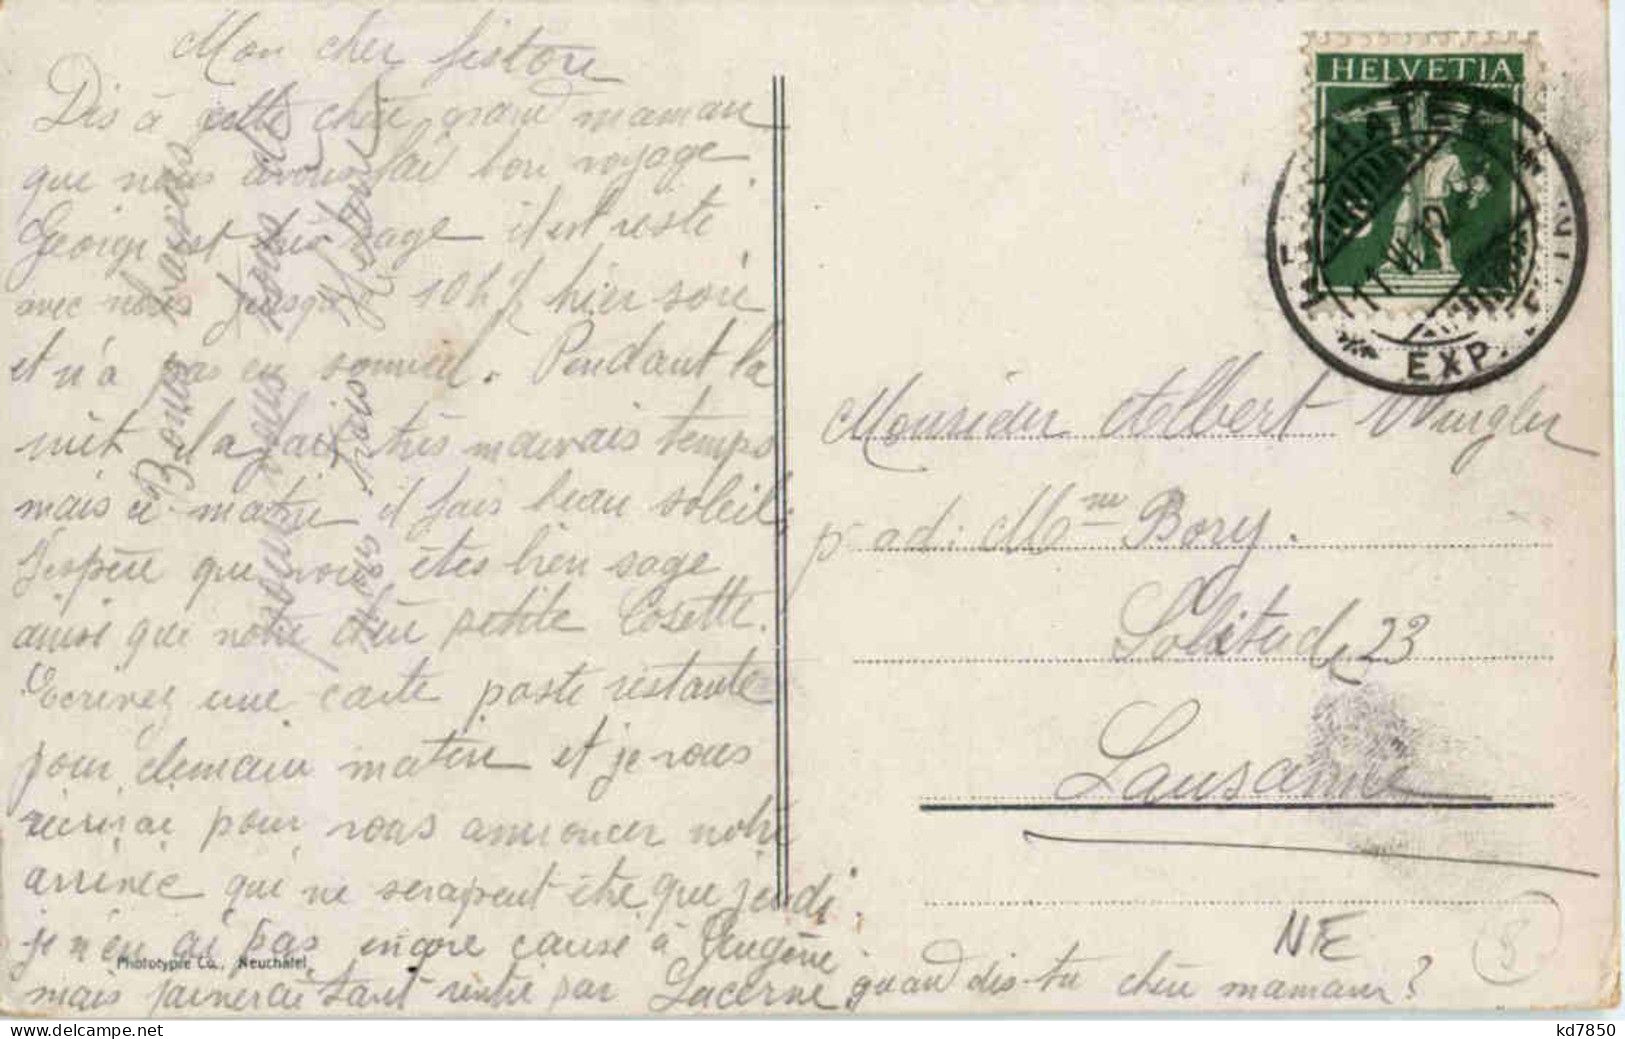 Mon cher fiston
Dis à cette chère grand maman
que nous avons fai bon voyage
George est très sage il est resté
avec nous jusqu'à 10h ½ hier soir
et n'a pas eu sommeil. Pendant la
nuit il a fait très mauvais temps
mais ce matin il fais beau soleil;
J'espère que vous êtes bien sage
ainsi que notre chère petite Cosette.
Ecrivez une carte poste restante
pour demain matin et je vous
récrirai pour vous annoncer notre
arrivée qui ne sera peut être que jeudi.
je n'en ai pas encore causé à Eugène
mais j'aimerai tant rentré par Lucerne quand dis-tu chère maman?
Bons baisers
nous tous
trois
Phototypie Co., Neuchâtel
HELVETIA
11.VI.12
EXP.
Monsieur Albert Wingler
p. ad: Mme Bory.
Solitude 23
Lausanne
NE
8
kd7850